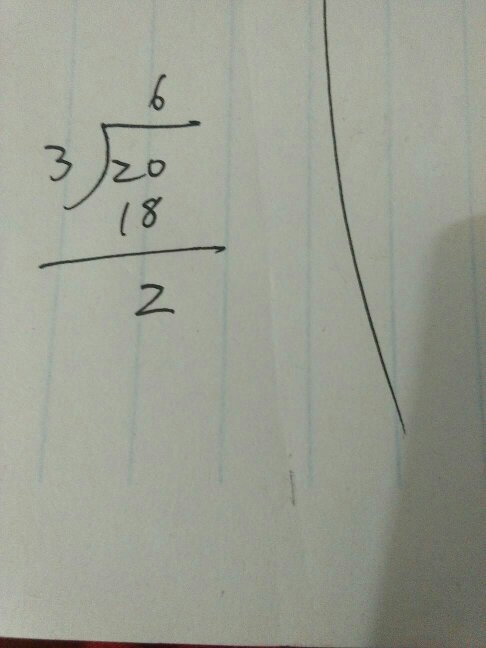 6
3)20
18
2